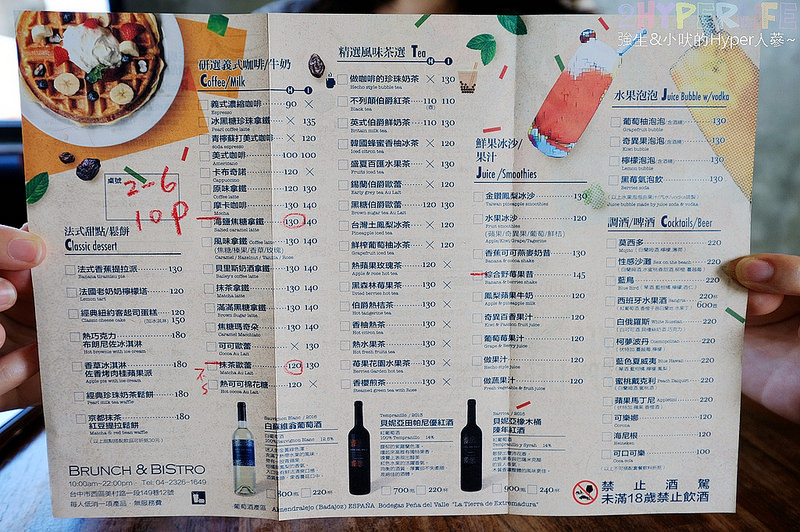 HYPER LIFE
強生&小吠的Hyper人蔘~
研選義式咖啡/牛奶
Coffee/Milk
義式濃縮咖啡 90 ×
Espresso
冰黑糖珍珠拿鐵 × 135
Pearl coffee latte
青檸蘇打美式咖啡 × 120
soda espresso
美式咖啡 100 100
Americano
卡布奇諾 120 ×
Cappuccino
原味拿鐵 120 130
Coffee latte
摩卡咖啡 130 140
Mocha
海鹽焦糖拿鐵 130 140
Salted caramel latte
風味拿鐵 Coffee latte 130 140
(焦糖/榛果/香草/玫瑰)
Caramel / Hazelnut / Vanilla / Rose
貝里斯奶酒拿鐵 130 140
Bailey's coffee latte
抹茶拿鐵 130 140
Matcha latte
滿滿黑糖拿鐵 130 140
Brown Sugar latte
焦糖瑪奇朵 130 140
Caramel Macchiato
可可歐蕾 120 130
Cocoa Au Lait
抹茶歐蕾 120 130
Matcha Au Lait
熱可可棉花糖 120 ×
桌號
2-6
10P
法式甜點/鬆餅
Classic dessert
法式香蕉提拉派 130
Banana tiramisu pie
法國老奶奶檸檬塔 120
Lemon tart
經典紐約客起司蛋糕 120
Classic cheese cake 150
熱巧克力 180
布朗尼佐冰淇淋
Hot brownie with ice cream
香草冰淇淋 180
佐香烤肉桂蘋果派
Apple pie with ice cream
經典珍珠抹茶鬆餅 180
京都抹茶 180
紅豆緹拉鬆餅
Matcha & red bean waffle
BRUNCH & BISTRO
10:00am~22:00pm Tel: 04-2326-1649
台中市西區美村路一段149巷12號
每人低消一項產品,無服務費
精選風味茶選 Tea
H I
做咖啡的珍珠奶茶 × 130
Hecho style bubble tea
不列顛伯爵紅茶 110 110
Black tea
英式伯爵鮮奶茶 130 130
Britain milk tea
韓國蜂蜜香柚冰茶 × 130
Iced citron tea
盛夏百匯水果茶 × 130
Fruits iced tea
錫蘭伯爵歐蕾 120 130
Early grey tea Au Lait
黑糖伯爵歐蕾 120 130
Brown sugar tea Au Lait
台灣土鳳梨冰茶 × 130
Pineapple iced tea
鮮榨葡萄柚冰茶 × 130
Grapefruit iced tea
熱蘋果玫瑰茶 120 ×
Apple & rose hot tea
黑森林莓果茶 130 130
Dried berries hot tea
伯爵熱桔茶 130 ×
Hot tangerine tea
香柚熱茶 130 ×
Hot citron tea
熱水果茶 130 ×
Hot fresh fruits tea
莓果花園水果茶 130 130
Hot Berries tea
香櫻煎茶 130 ×
Steamed green tea with Rose
鮮果冰沙/
果汁
Juice/Smoothies
金鑽鳳梨冰沙 130
Taiwan pineapple smoothies
水果冰沙 130
Fruit smoothies
(蘋果/奇異果/葡萄/鮮桔)
Apple/Kiwi/Grape/Tagerine
香蕉可可燕麥奶昔 130
Banana & cocoa shake
綜合野莓果昔 145
Banana & berries shake
鳳梨蘋果牛奶 120
Apple & pineapple milk
奇異百香果汁 120
Kiwi & Passion fruit juice
葡萄莓果汁 120
Grape & berry juice
做果汁 120
Hecho style juice
做蔬果汁 120
Fresh vegetable & fruit juice
水果泡泡 Juice Bubble w/vodka
葡萄柚泡泡 130
Grapefruit bubble
奇異果泡泡 130
Kiwi bubble
檸檬泡泡 130
Lemon bubble
黑莓氣泡飲 130
Berries soda
Juice bubble made by juice soda & vodka
調酒/啤酒 Cocktails/Beer
莫西多 220
性感沙灘 Sex on the beach 220
藍鳥 220
西班牙水果酒 Sangria 220
600壺
白俄羅斯 White Russian 220
柯夢波丹 Cosmopolitan 220
藍色夏威夷 Blue Hawaii 220
蜜桃戴克利 Peach Daiquiri 220
蘋果馬丁尼 220
可樂娜 120
Corona
海尼根 120
Heineken
可口可樂 100
Coca cola
Sauvignon Blanc / 2015
白蘇維翁葡萄酒
100% Sauvignon Blanc 12.5%
Tempranillo / 2013
貝妮亞田帕尼優紅酒
100% Tempranillo 14%
700 220
貝妮亞橡木桶
陳年紅酒
900 240
葡萄酒產區 Almendralejo (Badajoz) ESPAÑA Bodegas Peña del Valle "La Tierra de Extremadura"
禁止酒駕
未滿18歲禁止飲酒